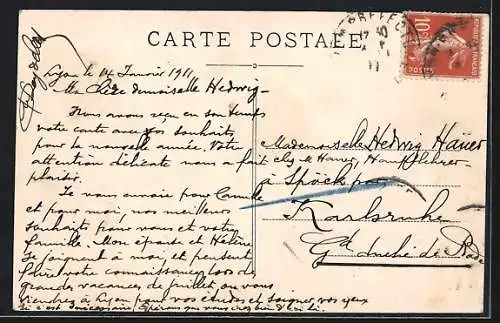 CARTE POSTALE
Lyon le 14 Janvier 1911
Ma Chère demoiselle Hedwig
Nous avons reçu en son temps
votre carte avec vos souhaits
pour la nouvelle année. Votre
attention délicate nous a fait
plaisir.
Je vous envoie pour Camille
et pour moi, nos meilleurs
souhaits pour vous et votre
famille. Mon épouse et Hélène
se joignent à moi, et pensent
faire votre connaissance lors des
grandes vacances de juillet, ou vous
viendrez à Lyon pour vos études et soigner vos yeux
si c'est nécessaire. Espérons que vous
Mademoiselle Hedwig Häuer
chez Mr Hauer, Hauptlehrer
à Spöck par
Karlsruhe
Gd duché de Bade
PREFECTURE
10
POSTES